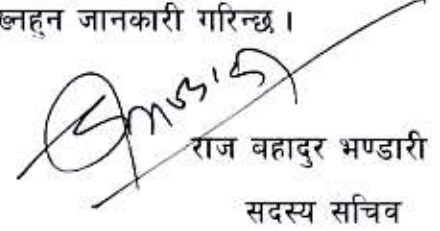 जानकारी गरिन्छ ।
राज बहादुर भण्डारी
सदस्य सचिव